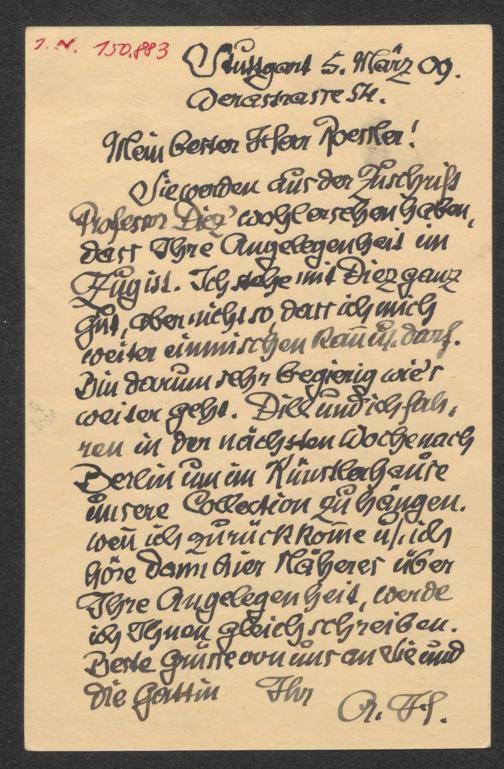 I. N. 150.883
Stuttgart 5. März 09.
Mein bester Herr Roessler!
Sie werden aus der Zuschrift
Professor Diez' wohl ersehen haben,
dass Ihre Angelegenheit im
Zug ist. Ich stehe mit Diez ganz
gut, aber nicht so, dass ich mich
weiter einmischen kan̅ u. darf.
Bin darum sehr begierig wie's
weiter geht. Dill und ich fah,
ren in der nächsten Woche nach
Berlin um im Künstlerhause
unsere Collection zu hängen.
wen̅ ich zurückkom̅e u. ich
höre dann hier Näheres über
Ihre Angelegenheit, werde
ich Ihnen gleich schreiben.
Beste Grüsse von uns an Sie und
die Gattin Ihr
A. H.